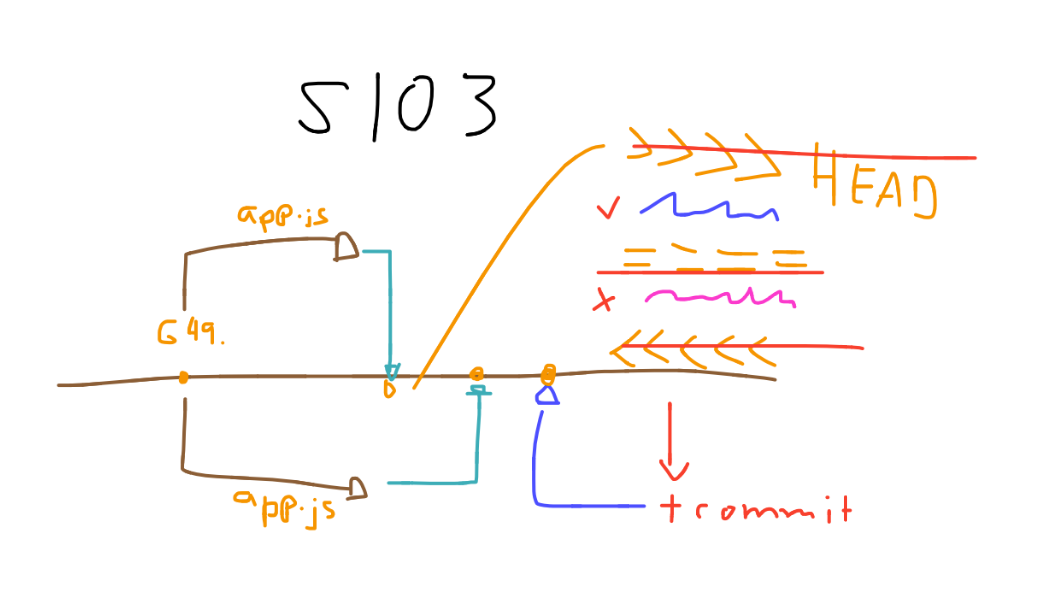 5103
>>>> HEAD
app.js
====
G49.
<<<<<
app.js
+ commit